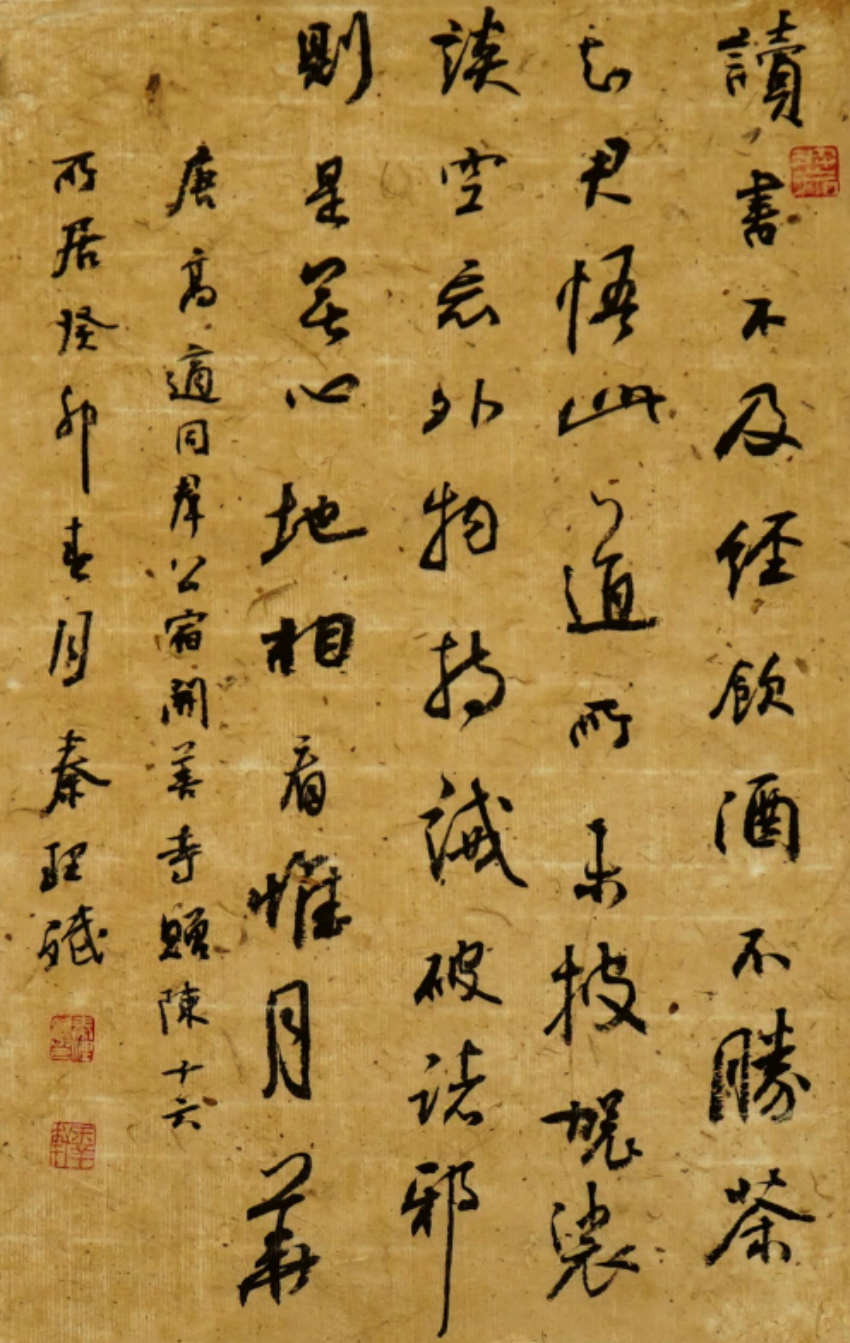 讀書不及經飲酒不勝茶
知君悟此道所未披袈裟
談空忘外物持誡破諸邪
則是無心地相看惟月華
唐高適同羣公宿開善寺贈陳十六
所居癸卯春月秦理斌